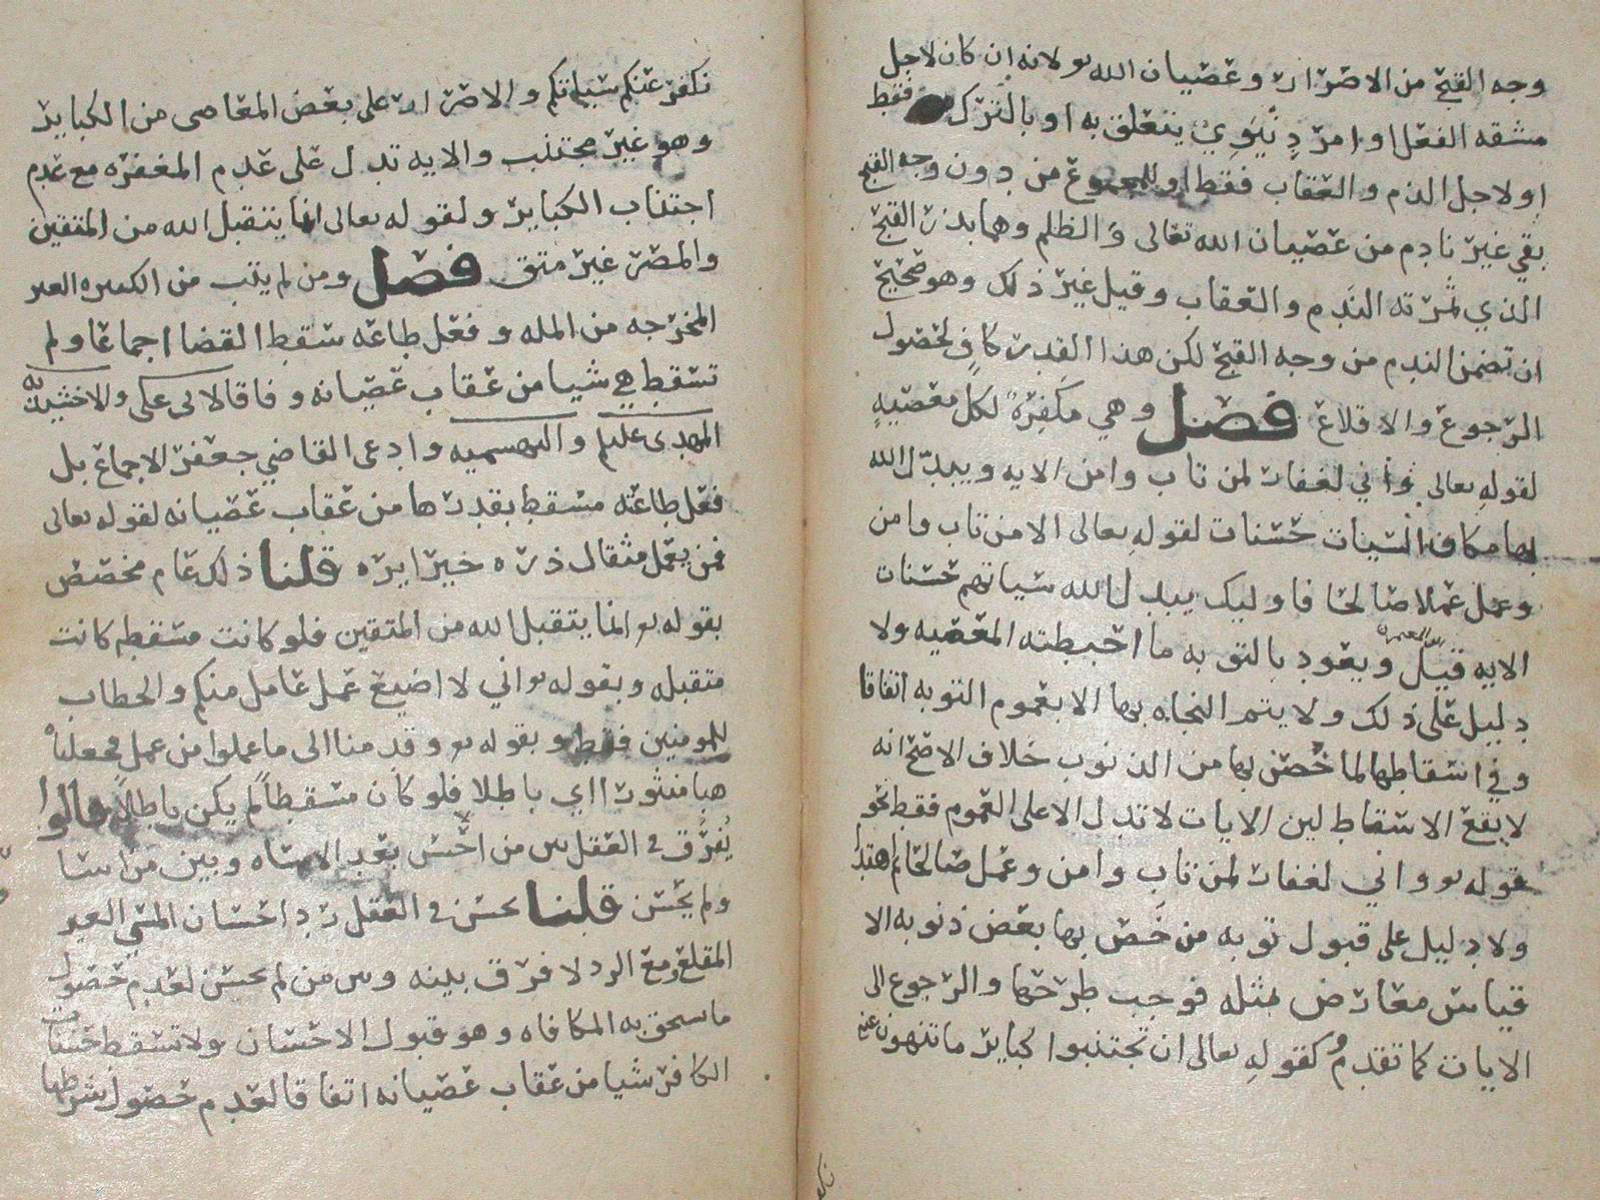 وجه القبح من الاضرار وعصيان الله بولانه ان كان لاجل
مشقه الفعل او امر دنيوي يتعلق به او بالترك فقط
او لاجل الذم والعقاب فقط او للمجموع من دون وجه القبح
بقي غير نادم من عصيان الله تعالى والظلم وهما بذر القبح
الذي ثمرته الندم والعقاب وقيل غير ذلك وهو صحيح
ان تضمن الندم من وجه القبح لكن هذا القدر كافٍ لحصول
الرجوع والاقلاع فصل وهي مكفرةً لكل معصيهٍ
لقوله تعالى واني لغفار لمن تاب وامن الايه ويبدل الله
بها مكان السيات حسنات لقوله تعالى الا من تاب وامن
وعمل عملا صالحا فاوليك يبدل الله سياتهم حسنات
الايه قيل ويعود بالتوبه ما احبطته المعصيه ولا
دليل على ذلك ولا يتم النجاه بها الا بعموم التوبه اتفاقا
وفي اسقاطها لما خُصّ بها من الذنوب خلاف الاصح انه
لا يقع الاسقاط لين الايات لا تدل الا على العموم فقط نحو
قوله تع واني لغفار لمن تاب وامن وعمل صالحا ثم اهتدا
ولا دليل على قبول توبه من خَصّ بها بعض ذنوبه الا
قياس معارض بمثله فوجب طرحها والرجوع الى
الايات كما تقدم وكقوله تعالى ان تجتنبوا كباير ما تنهون عنه
نكفر عنكم سياتكم والاصرار على بعض المعاصي من الكباير
وهو غير مجتنب والايه تدل على عدم المغفره مع عدم
اجتناب الكباير ولقوله تعالى انما يتقبل الله من المتقين
والمصر غير متق فصل ومن لم يتب من الكبيره الغير
المخرجه من المله وفعل طاعه سقط القضا اجماعا ولم
تسقط هي شيا من عقاب عصيانه وفاقا لابي علي والاخشيديه
المهدي عليلم والبهشميه وادعى القاضي جعفر الاجماع بل
فعل طاعته مسقط بقدرها من عقاب عصيانه لقوله تعالى
فمن يعمل مثقال ذره خيرا يره قلنا ذلك عام مخصص
بقوله تع انما يتقبل الله من المتقين فلو كانت مسقطه كانت
متقبله وبقوله تع اني لا اضيع عمل عامل منكم والخطاب
للمومنين فقط وبقوله تع وقدمنا الى ما عملوا من عمل فجعلناه
هبا منثورا اي باطلا فلو كان مسقطاً لم يكن باطلاً قالوا
يُفرَّق في العقل بين من احسن بعد الاساه وبين من اسا
ولم يحسن قلنا يحسن في العقل رد احسان المسي الغير
المقلع ومع الرد لا فرق بينه وبين من لم يحسن لعدم حصول
ما يستحق به المكافاه وهو قبول الاحسان ولا تسقط حسنات
الكافر شيا من عقاب عصيانه اتفاقا لعدم حصول شرطها